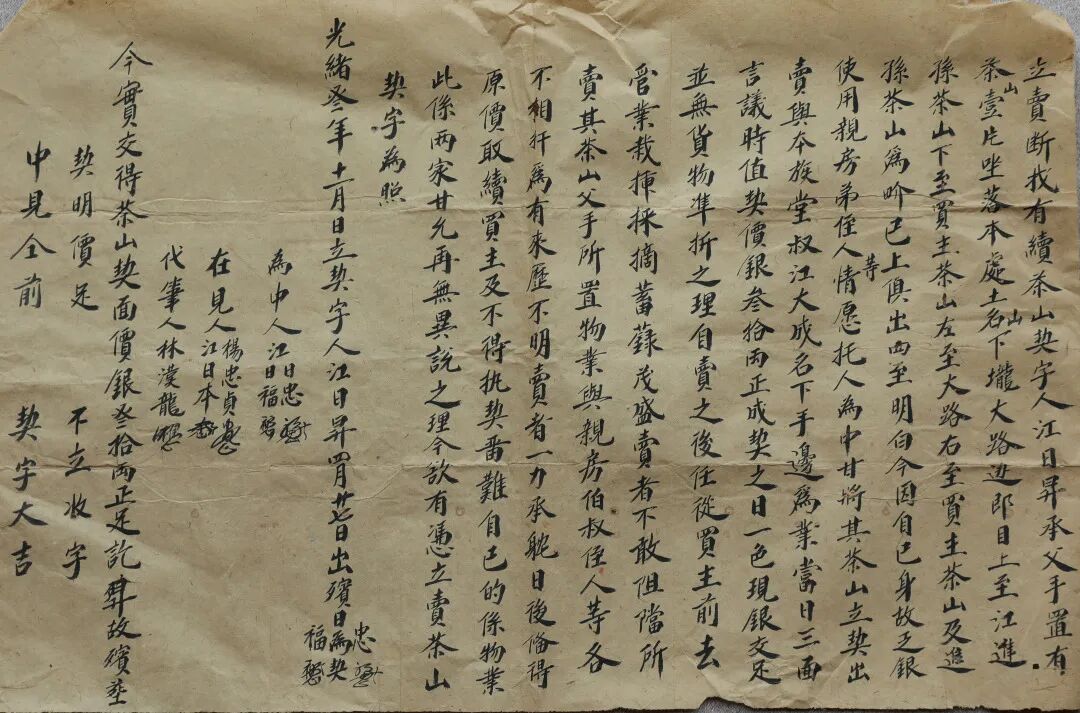 立賣断找有續茶山契字人江日昇承父手置有
茶山壹片坐落本處土名山下壠大路边即目上至江進
孫茶山下至買主茶山左至大路右至買主茶山及進
孫茶山為界已上俱出四至明白今因自己身故乏銀
使用親房弟侄人等情愿托人為中甘將其茶山立契出
賣與本族堂叔江大成名下手邊為業當日三面
言議時值契價銀叁拾両正成契之日一色現銀交足
並無貨物準折之理自賣之後任從買主前去
管業栽插採摘蓄菉茂盛賣者不敢阻擋所
賣其茶山父手所置物業與親房伯叔侄人等各
不相干為有來歷不明賣者一力承躭日後俻得
原價取續買主及不得执契畨難自己的係物業
此係两家甘允再無異說之理今欲有憑立賣茶山
契字為照
光緒叁年十一月日立契字人江日昇四月廿七日出殯日為契 忠 福
為中人江日忠 江日福
在見人楊忠貞 江日本
代筆人林漢龍
今實交得茶山契面價銀叁拾両正足訖昇故殯塟
契明價足 不立收字
中見仝前 契字大吉